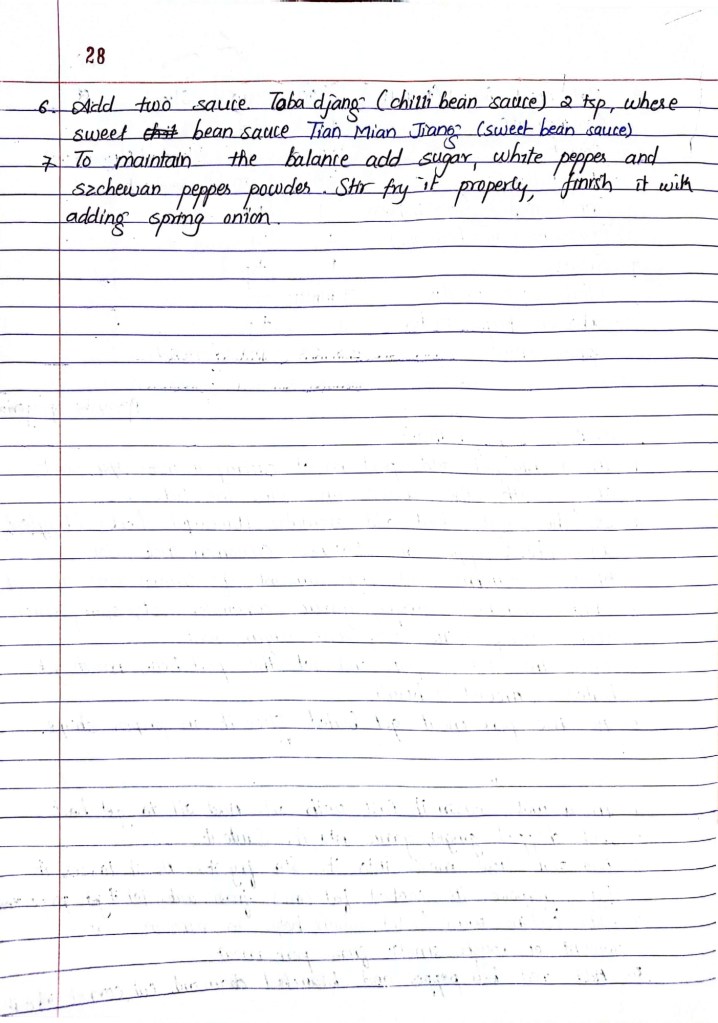 28
6. Add two sauce Toba djang (chilli bean sauce) 2 tsp, where
sweet bean sauce Tian Mian Jiang (sweet bean sauce)
7 To maintain the balance add sugar, white pepper and
szchewan pepper powder. Stir fry it properly, finish it with
adding spring onion.